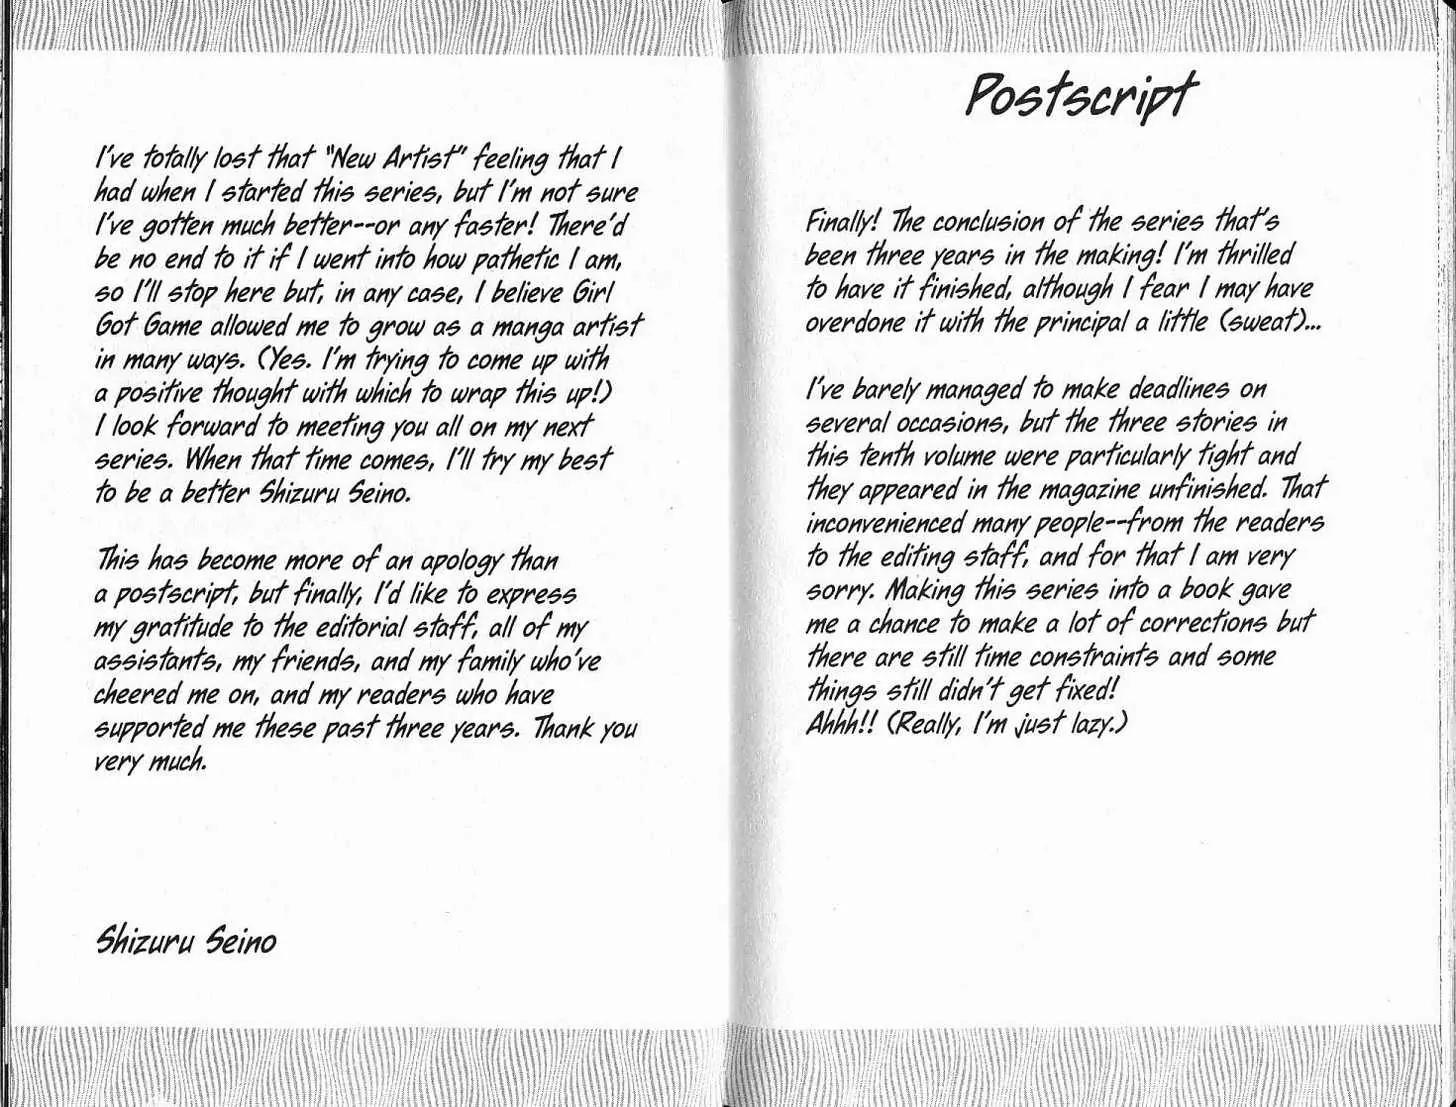 Postscript
Finally! The conclusion of the series that's
been three years in the making! I'm thrilled
to have it finished, although I fear I may have
overdone it with the principal a little (sweat)...
I've barely managed to make deadlines on
several occasions, but the three stories in
this tenth volume were particularly tight and
they appeared in the magazine unfinished. That
inconvenienced many people--from the readers
to the editing staff, and for that I am very
sorry. Making this series into a book gave
me a chance to make a lot of corrections but
there are still time constraints and some
things still didn't get fixed!
Ahhh!! (Really, I'm just lazy.)
I've totally lost that "New Artist" feeling that I
had when I started this series, but I'm not sure
I've gotten much better--or any faster! There'd
be no end to it if I went into how pathetic I am,
so I'll stop here but, in any case, I believe Girl
Got Game allowed me to grow as a manga artist
in many ways. (Yes. I'm trying to come up with
a positive thought with which to wrap this up!)
I look forward to meeting you all on my next
series. When that time comes, I'll try my best
to be a better Shizuru Seino.
This has become more of an apology than
a postscript, but finally, I'd like to express
my gratitude to the editorial staff, all of my
assistants, my friends, and my family who've
cheered me on, and my readers who have
supported me these past three years. Thank you
very much.
Shizuru Seino